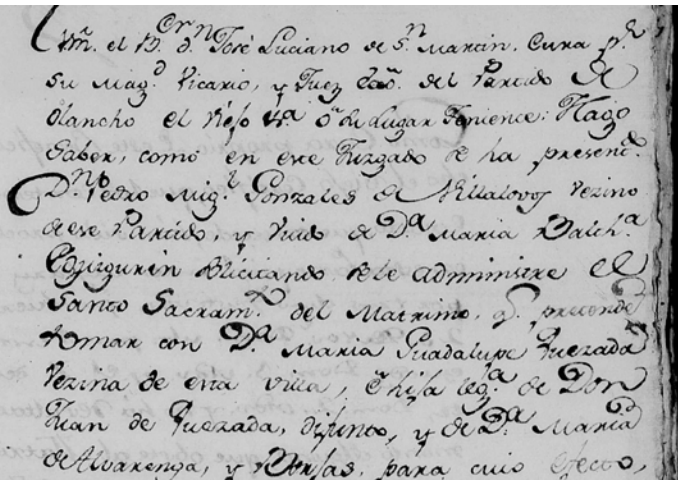 el B. d. José Luciano de Sn. Martin. Cura pr.
su Magd. Vicario, y Juez Ecco. del Partido de
Olancho el Viejo Va. o su Lugar Teniente: Hago
Saber, como en este Juzgado se ha presentdo.
Dn. Pedro Migl. Gonzales de Villalovos Vezino
de ese Partido, y Viudo de Da. Maria
solicitando se le administre el
Santo Sacramto. del Matrimo. qe. pretende
tomar con Da. Maria Guadalupe Quezada
Vezina de esta villa, é hija lega. de Don
Juan de Quezada, difunto, y de Da. Maria
de Alvarenga, y para cuio efecto,